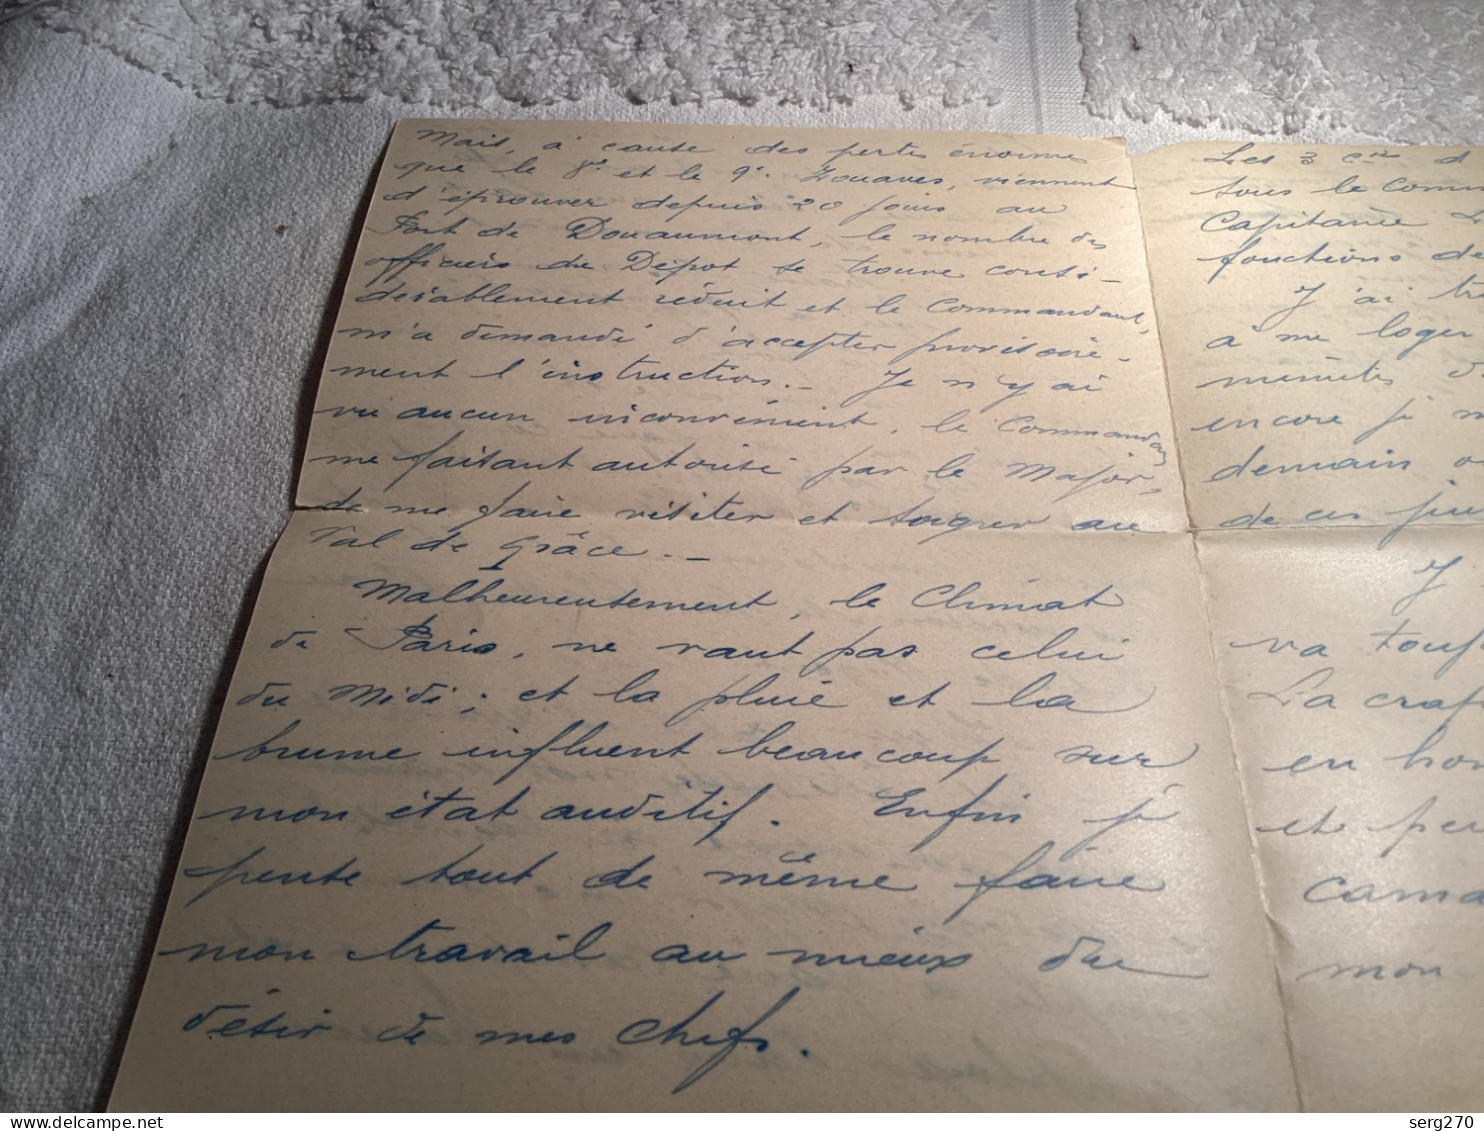 Mais, à cause des pertes énormes
que le 8e et le 9e Zouaves, viennent
d'éprouver depuis 20 jours au
Fort de Douaumont, le nombre des
officiers du Dépot se trouve consi-
dérablement réduit et le Commandant,
m'a demandé d'accepter provisoire-
ment l'instruction.- Je n'y ai
vu aucun inconvénient, le Commandant
me faisant autorisé par le Major,
de me faire visiter et soigner au
Val de Grâce.-
Malheureusement, le Climat
de Paris, ne vaut pas celui
du Midi; et la pluie et la
brume influent beaucoup sur
mon état auditif. Enfin je
pense tout de même faire
mon travail au mieux du
désir de mes chefs.
Les 3 cies d
sous le Comm
Capitaine
fonctions de
J'ai tr
à me loger
minutes d
encore je m
demain o
de ces jou
J
va touj
La craf
en hon
et per
cama
mon
www.delcampe.net
serg270